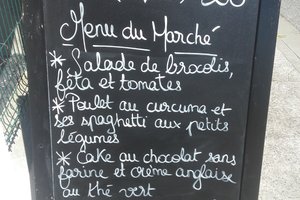 Menu du Marché
* Salade de brocolis,
féta et tomates
* Poulet au curcuma et
ses spaghetti aux petits
légumes
* Cake au chocolat sans
farine et crème anglaise
au thé vert